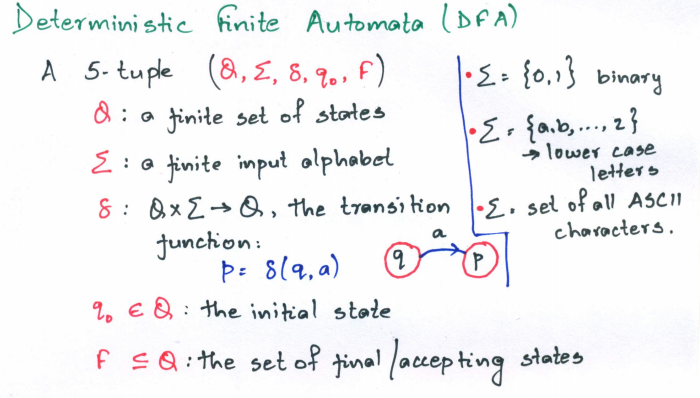 Deterministic Finite Automata (DFA)
A 5-tuple (Q, Σ, δ, q₀, F)
Q : a finite set of states
Σ : a finite input alphabet
δ : Q × Σ → Q, the transition
function:
p = δ(q, a)
a
q
p
q₀ ∈ Q : the initial state
F ⊆ Q : the set of final/accepting states
• Σ = {0,1} binary
• Σ = {a,b,...,z}
→ lower case
letters
• Σ = set of all ASCII
characters.